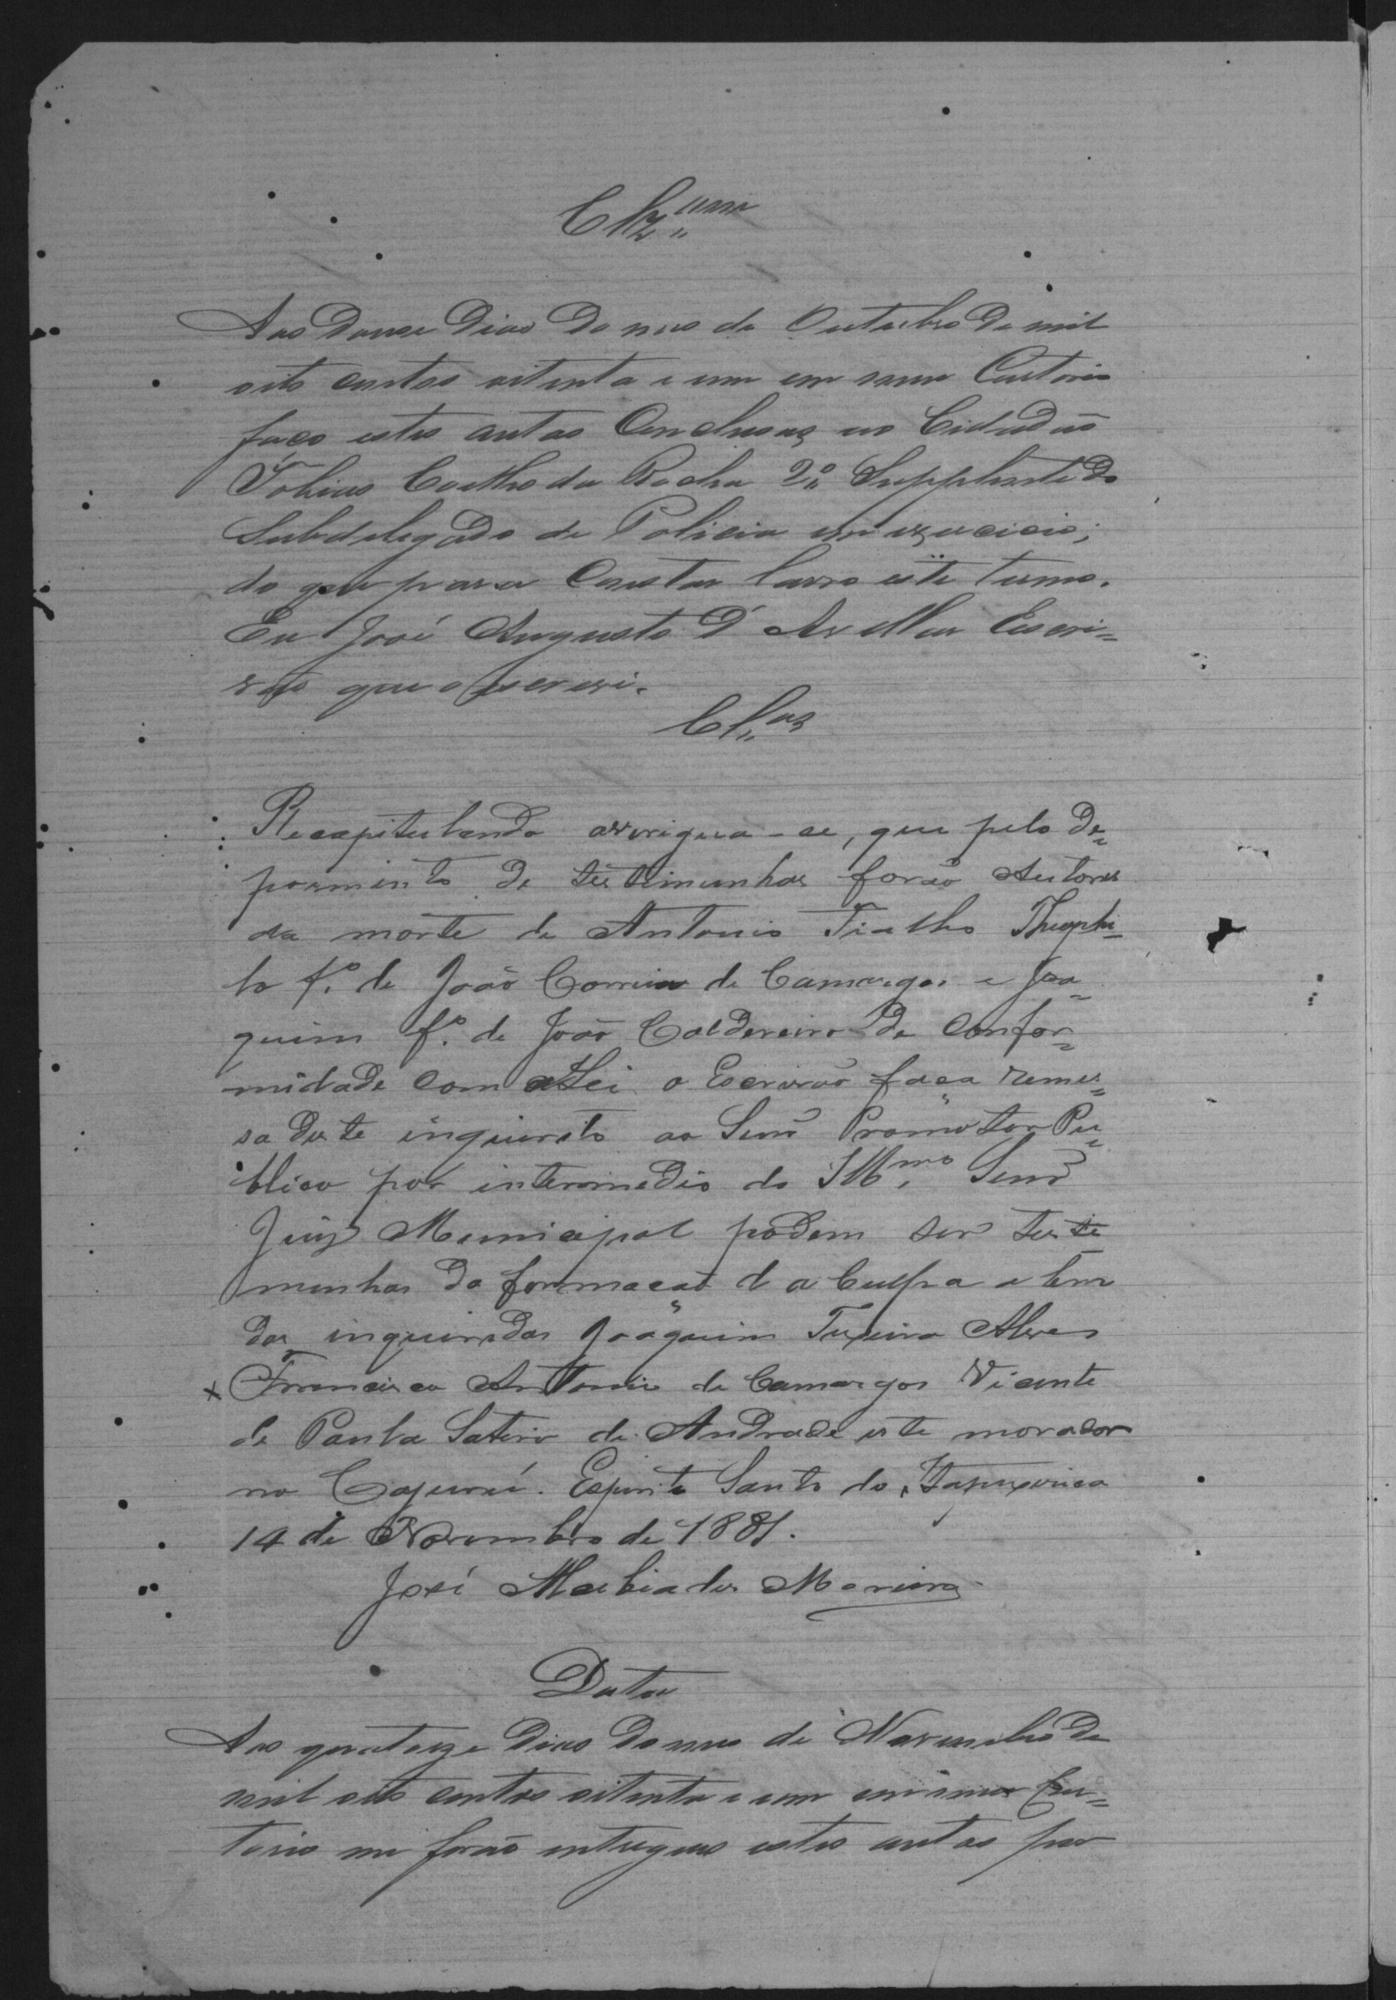 Clz.am
Aos Douse dias do mes de Outubro de mil
oito centos oitenta e um em meu Cartorio
faço estes autos Conclusos ao Cidadão
Tobias Coelho da Rocha 2º Supplente do
Subdelegado de Policia em exercicio;
do que para Constar lavro este termo.
Eu José Augusto D'Avellar Escri=
vão que o escrevi.
Cl.os
Recapitulando averigua-se, que pelo de=
poimento de testimunhas forão Autores
da morte de Antonio Fialho Theophi=
lo f.º de João Correia de Camargos e Joa=
quim f.º de João Caldereiro De confor=
midade com a Lei o Escrivão faça remes=
sa deste inquerito ao Senr Promotor Pu=
blico por intermedio do Illmº. Senr
Juiz Municipal podem ser teste
munhas da formacaõ da Culpa alem
das inqueridas Joaquim Teixeira Alves
x Francisco Antonio de Camargos Vicente
de Paula Saterio de Andrade este morador
no Cajurú. Espirito Santo do Itapixirica
14 de Novembro de 1881.
José Moreira
Data
Aos quatorze dias do mes de Novembro de
mil oito centos oitenta e um em meu Car=
torio me forão entregues estes autos por